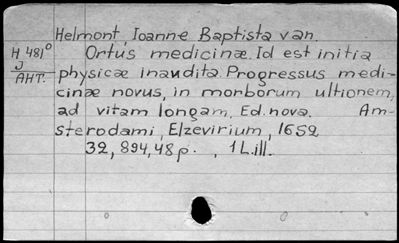 Helmont, Ioanne Baptista van.
H 481⁰ Ortus medicinæ. Id est initia
J
АНТ. physicæ inaudita. Progressus medi-
cinæ novus, in morborum ultionem,
ad vitam longam. Ed. nova. Am-
sterodami, Elzevirium, 1652
32, 894, 48 p. , 1 L. ill.